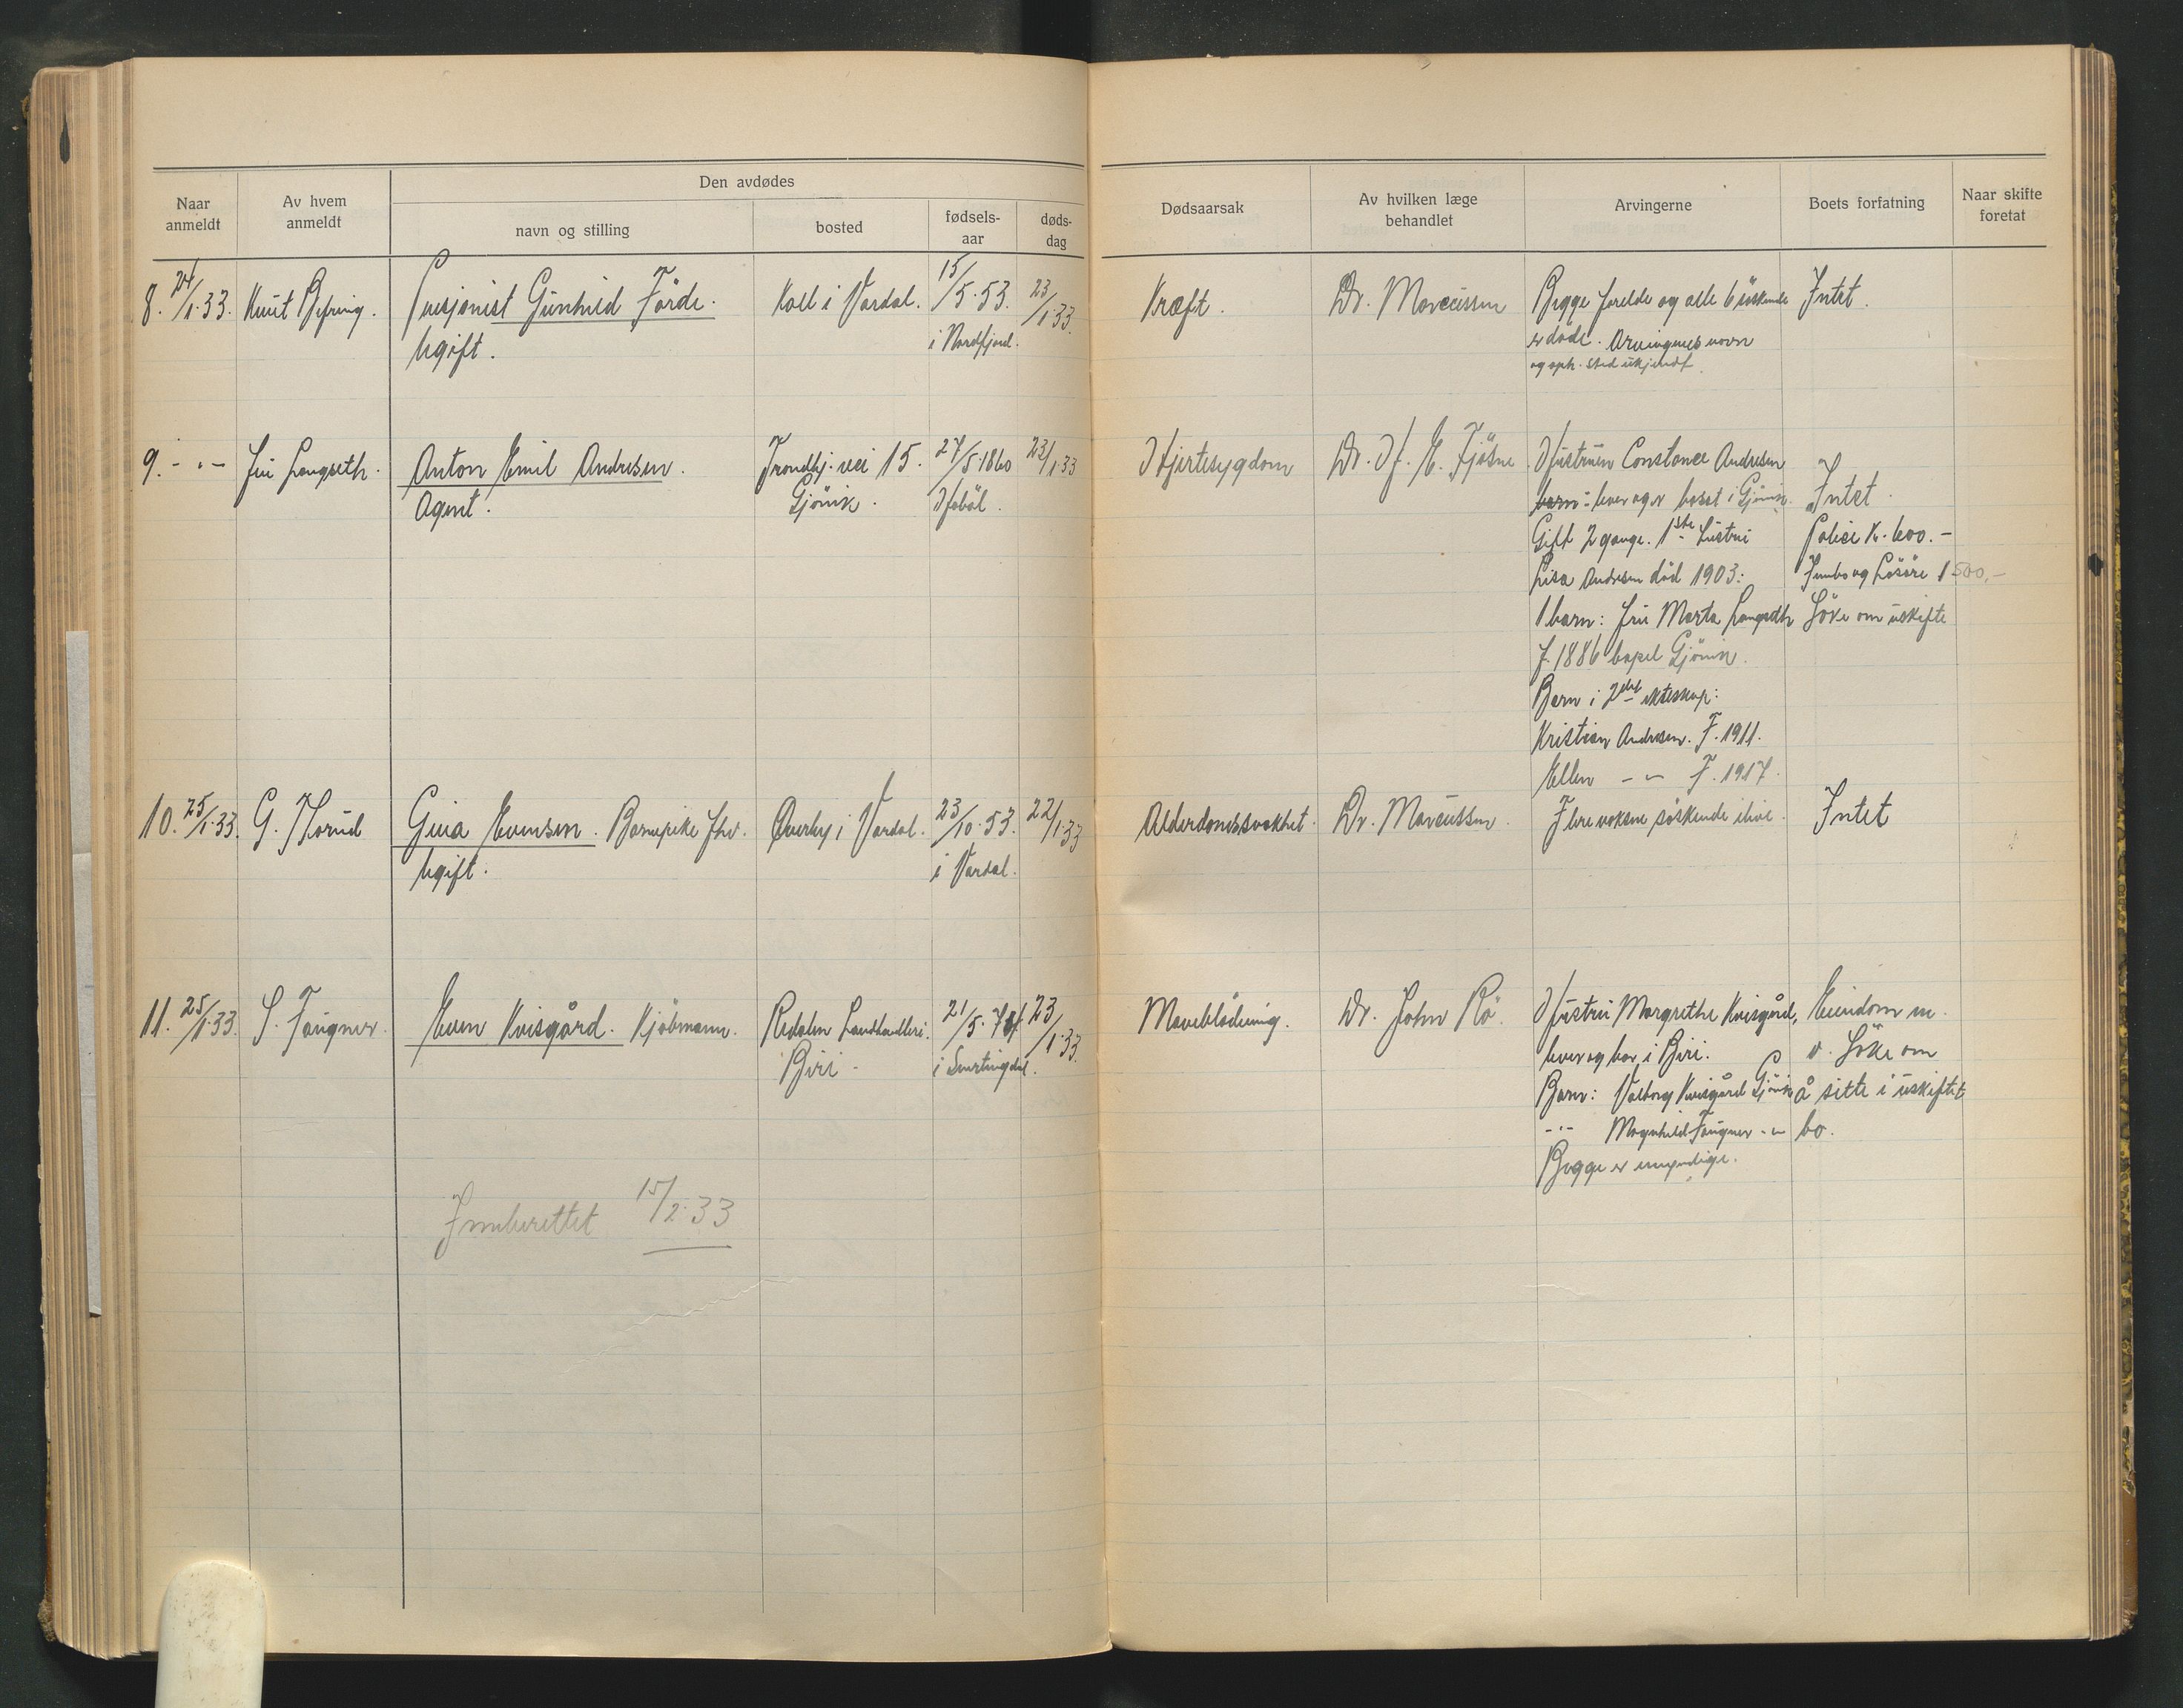 Naar anmeldt
Av hvem anmeldt
Den avdødes
navn og stilling
bosted
fødsels-aar
døds-dag
Dødsaarsak
Av hvilken læge behandlet
Arvingerne
Boets forfatning
Naar skifte foretat
8. 24/1.33. Knut
Pensjonist Gunhild Förde.
Ugift.
Koll i Vardal.
15/5.53.
i Nordfjord.
23/1.33.
Kræft.
Dr. Marcussen
Begge foreldre og alle 6 söskende
er døde. Arvingenes navn
og oph. sted ukjendt.
Intet.
9. -"- Fru Langseth.
Anton Emil Andresen.
Agent.
Trondhj. vei 15.
Gjövik.
27/5.1860
Hobøl.
23/1.33
Hjertesygdom
Dr. H. E. Fjösne
Hustruen Constance Andresen
barn: lever og er bosat i Gjövik.
Gift 2 gange. 1ste hustru
Lisa Andresen död 1903:
1 barn: fru Marta Langseth
f. 1886 bopel Gjövik.
Barn i 2det ekteskap:
Kristian Andresen. F. 1911.
Ellen -"- F. 1917.
Intet.
Police Kr. 600.-
Innbo og Lösöre 1500,-
Söke om uskifte
10. 25/1.33. G. Horud
Gina Evensen. Barnepike fhv.
Ugift.
Överby i Vardal.
23/10.53.
i Vardal.
22/1.33
Alderdomssvakhet.
Dr. Marcussen.
Flere voksne söskende ilive.
Intet
11. 25/1.33. S. Faugner.
Even Kvisgård. Kjöbmann.
Redalen Landhandleri.
Biri.
21/5.
i Snertingdal.
23/1.33.
Maveblödning.
Dr. John Rö.
Hustru Margrethe Kvisgård,
lever og bor i Biri.
Barn: Valborg Kvisgård Gjövik
-"- Magnhild Faugner -"-
Begge er
Eiendom m.
v. Söke om
å sitte i uskiftet
bo.
Innberettet 15/2.33